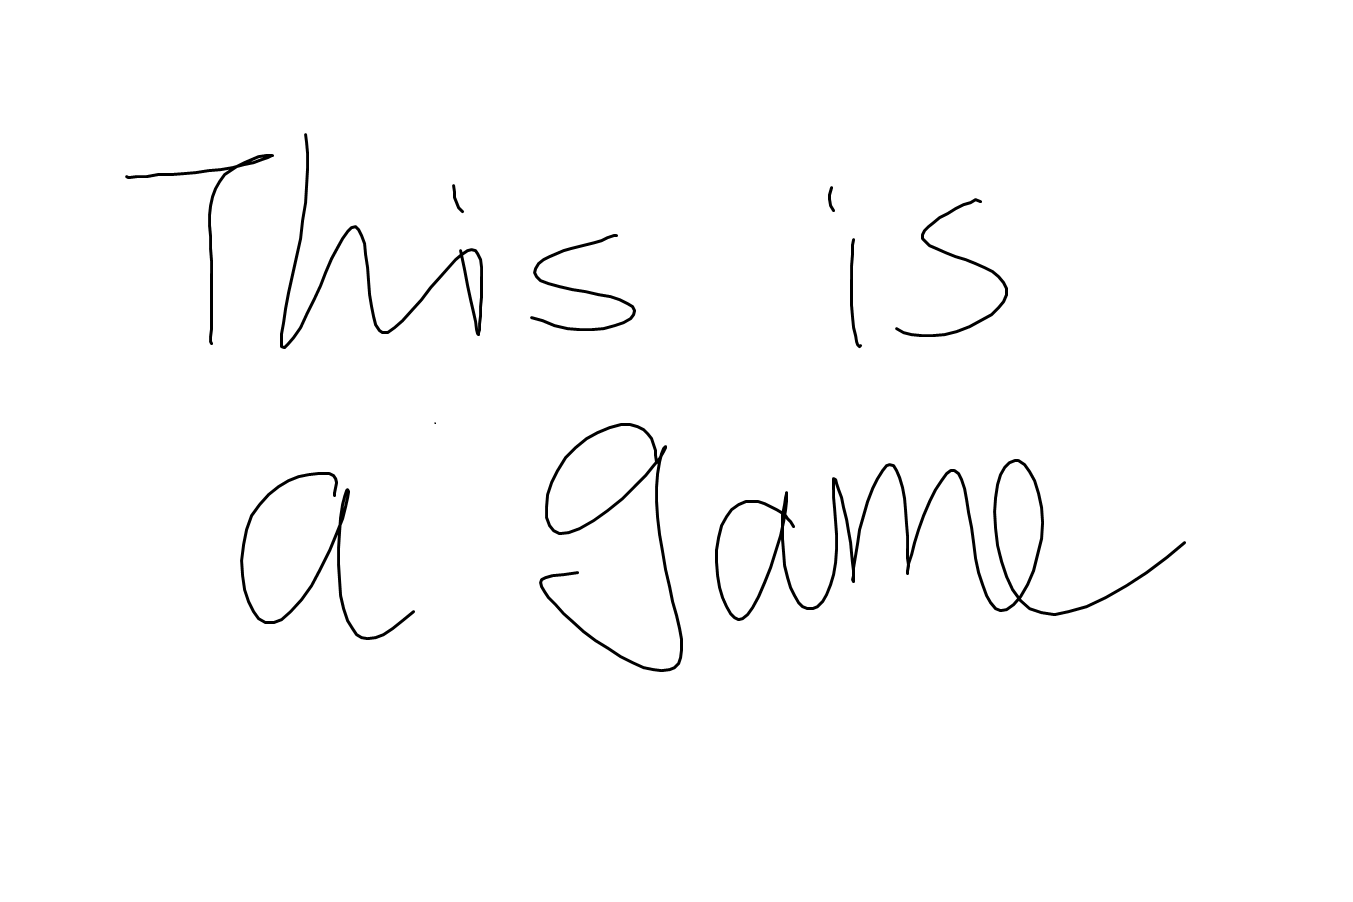 This is
a game